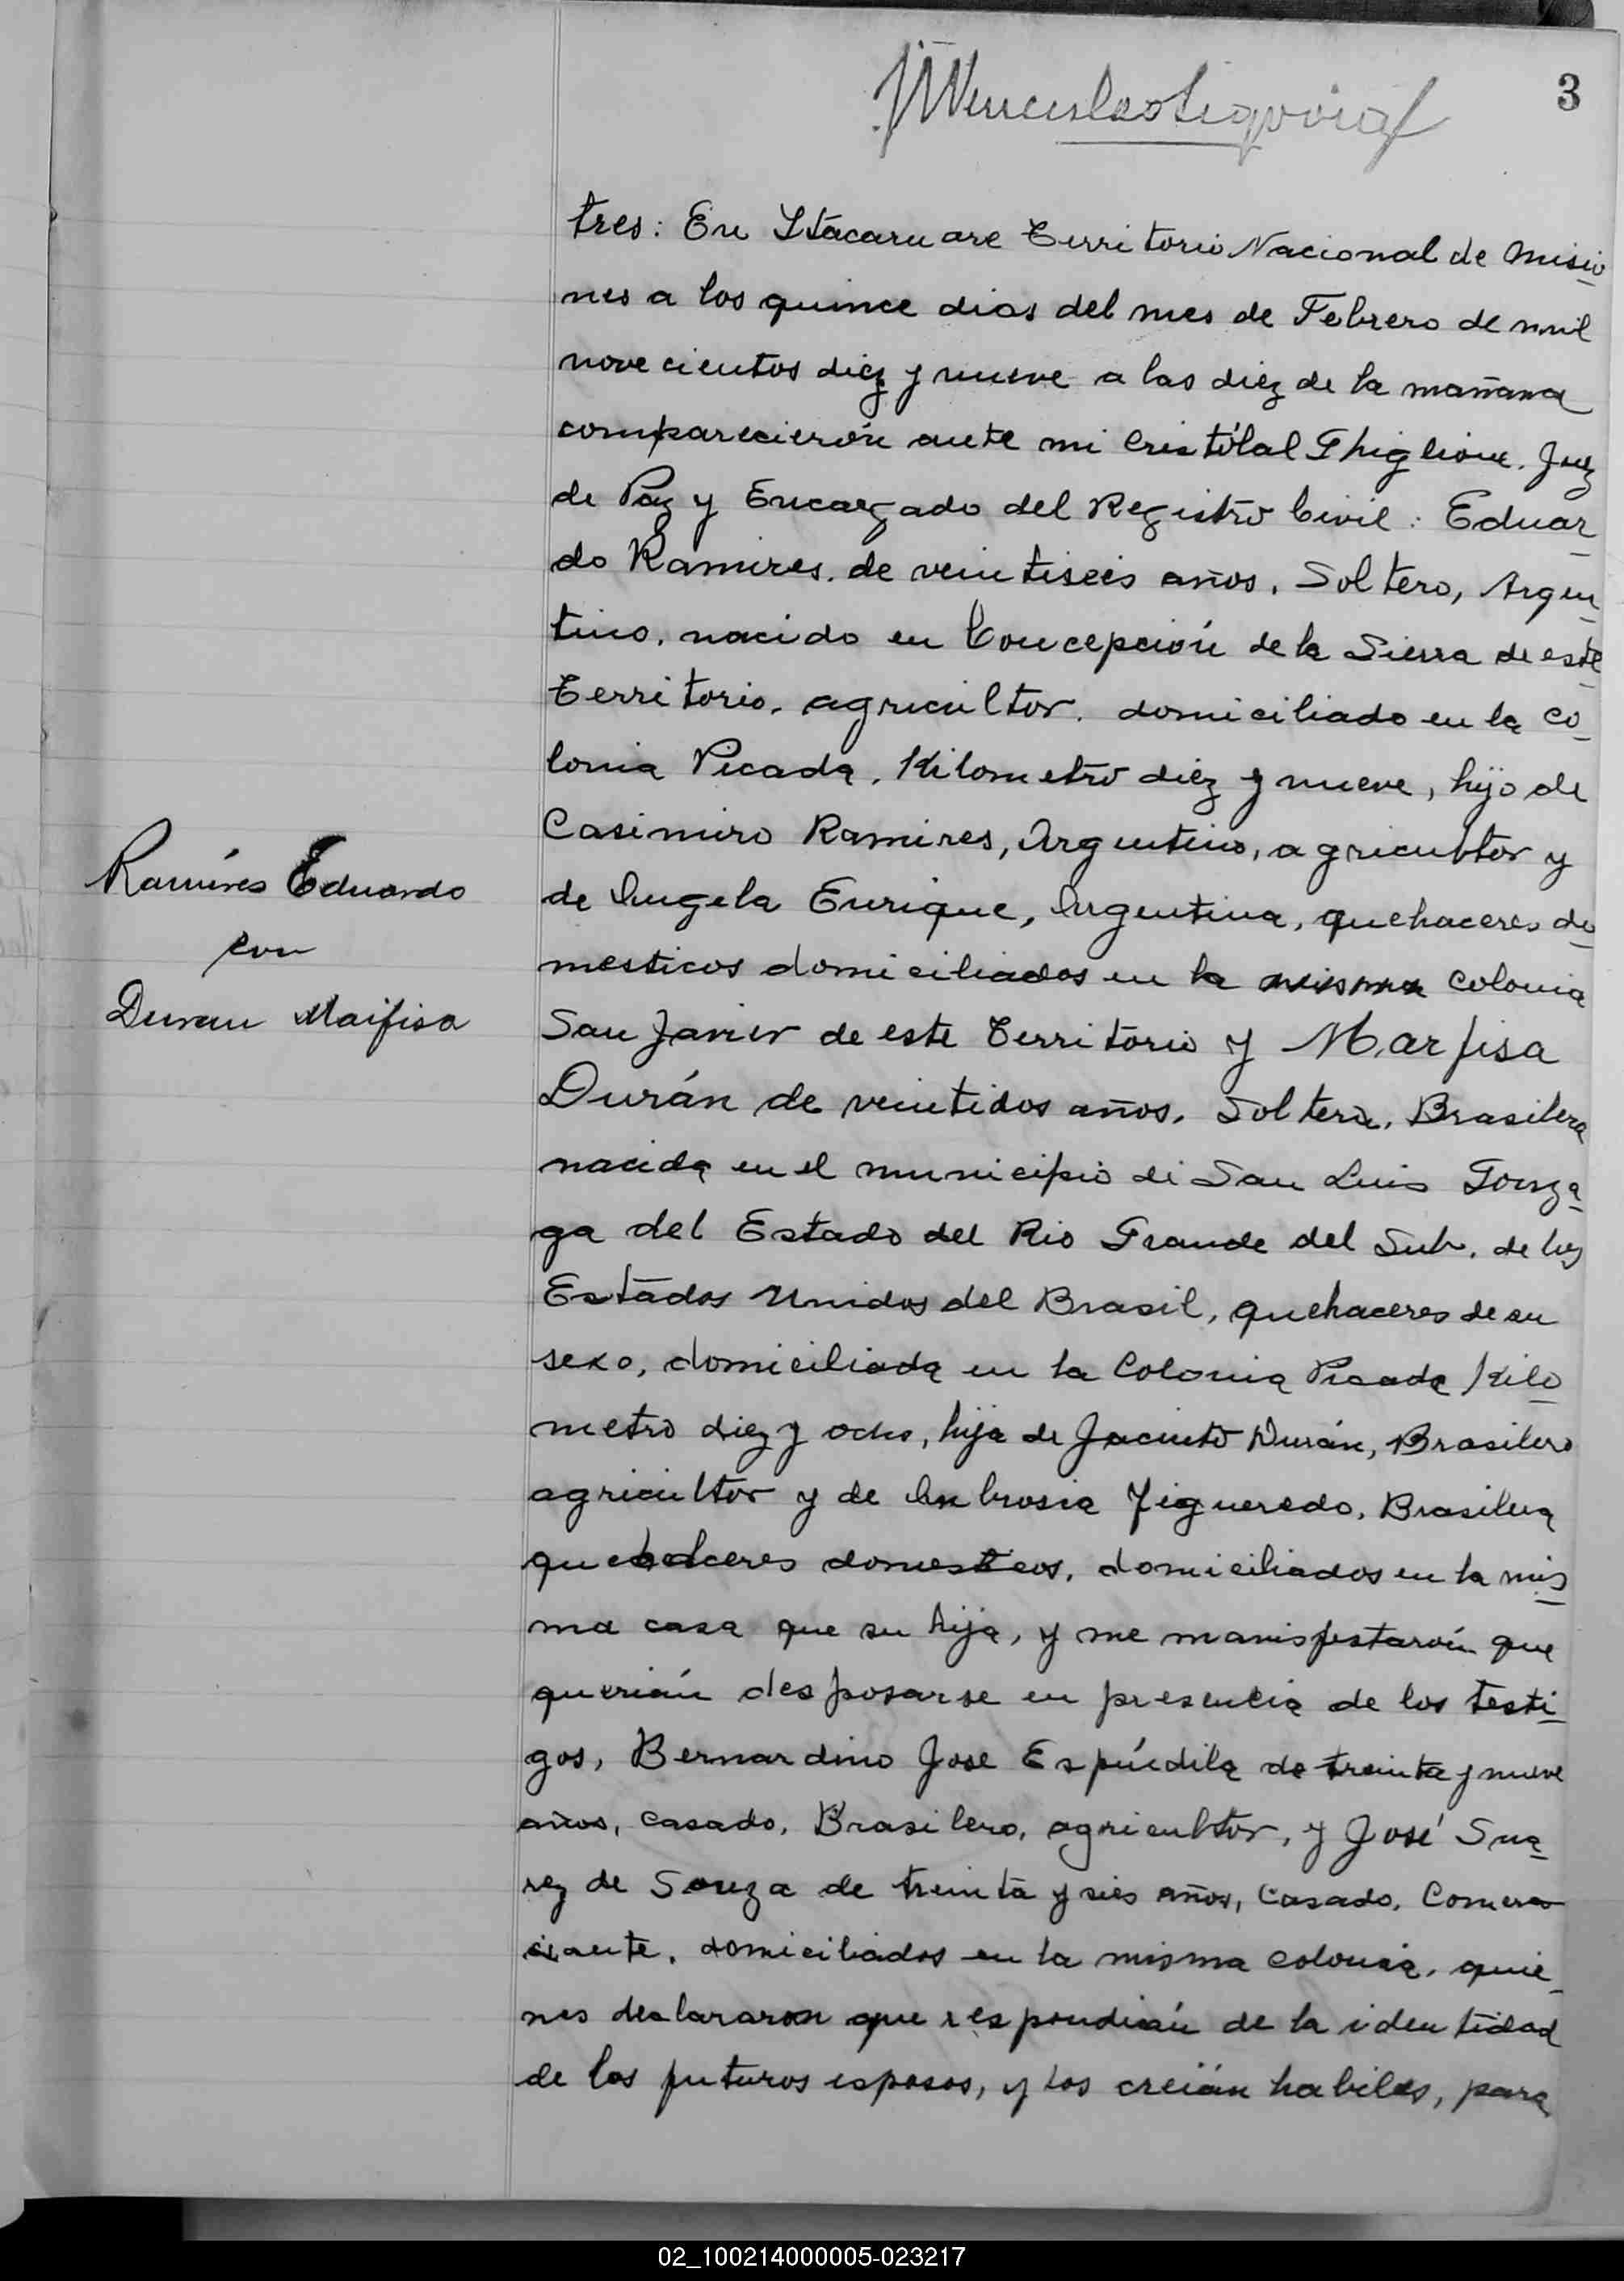 3
tres: En Ytacaruare Territorio Nacional de Misio
nes a los quince dias del mes de Febrero de mil
novecientos diez y nueve a las diez de la mañana
comparecierón ante mi Cristóbal Ghiglione. Juez
de Paz y Encargado del Registro Civil: Eduar
do Ramires. de veintiseis años, Soltero, Argen
tino. nacido en Concepción de la Sierra de este
Territorio. agricultor. domiciliado en la Co
lonia Picada, Kilometro diez y nueve, hijo de
Casimiro Ramires, Argentino, agricultor y
de Angela Enrique, Argentina, quehaceres do
mesticos domiciliados en la misma Colonia
San Javier de este Territorio y Marfisa
Durán de veintidos años, Soltera, Brasilera
nacida en el municipio di San Luis Gonza
ga del Estado del Rio Grande del Sub, de los
Estados Unidos del Brasil, quehaceres de su
sexo, domiciliada en la Colonia Picada Kilo
metro diez y ocho, hija de Jacinto Durán, Brasilero
agricultor y de Ambrosia Figueredo, Brasilera
quehaceres domesticos, domiciliados en la mis
ma casa que su hija, y me manisfestarón que
querián desposarse en presencia de los testi
gos, Bernardino Jose Espíndila de treinta y nueve
años, casado, Brasilero, agricultor, y José Sua
rez de Souza de treinta y seis años, Casado, Comer
ciante, domiciliados en la misma colonia, quie
nes declararon que respondián de la identidad
de los futuros esposos, y los creián habiles, para
Ramíres Eduardo
con
Duran Maifisa
02_100214000005-023217